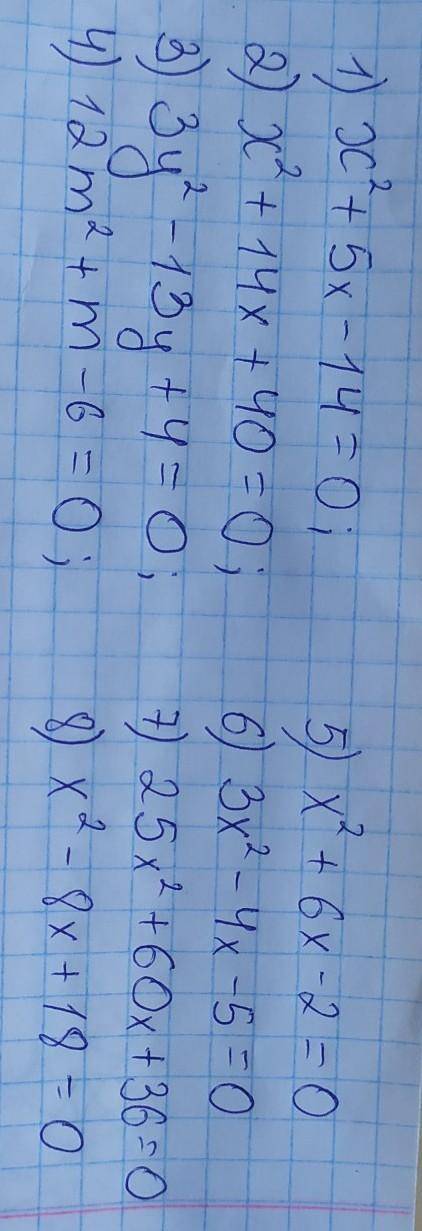 1) x² + 5x - 14 = 0;
2) x² + 14x + 40 = 0;
3) 3y² - 13y + 4 = 0;
4) 12m² + m - 6 = 0;
5) x² + 6x - 2 = 0
6) 3x² - 4x - 5 = 0
7) 25x² + 60x + 36 = 0
8) x² - 8x + 18 = 0